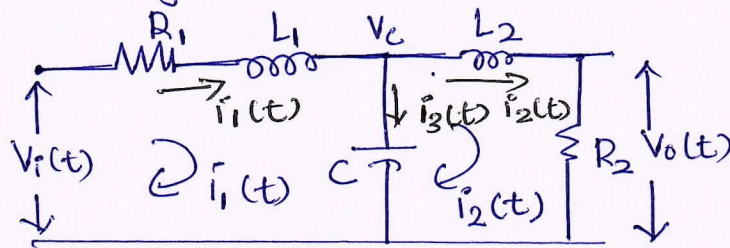 R₁ L₁ Vc L₂
i₁(t) i₃(t) i₂(t)
Vi(t) i₁(t) C i₂(t) R₂ Vo(t)